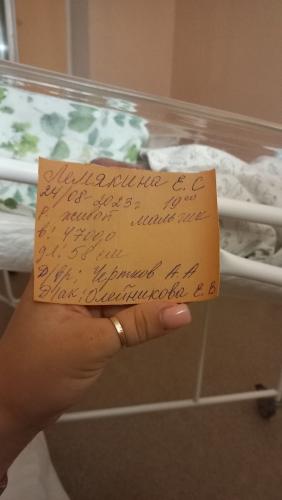 Лемякина Е. С
24/08 2023г 19⁰⁰
Р. живой мальчик
в: 4700,0
дл: 58 см
Д/вр: Чертков А А
Д/ак: Олейникова Е. В